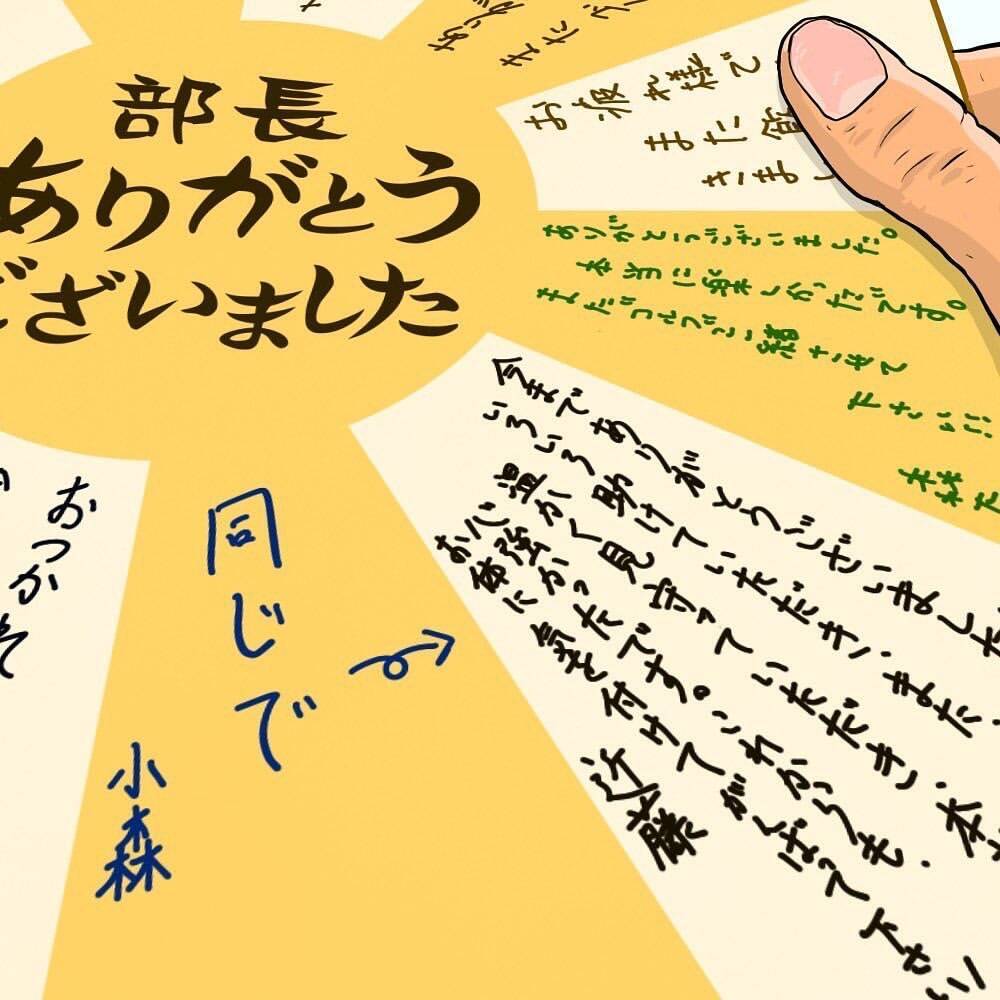 部長
ありがとう
ございました
お疲れ様で
また飲
さまし
ありがとうございました。
本当に楽しかったです。
またゴルフご一緒させて
下さい!!
今まであリがとうございました
いろいろ助けていただき、また、
温かく見守っていただき、本
心強かったです。これからも、
お体に気を付けてがんばって下さい
近藤
同じで
小森
おつか